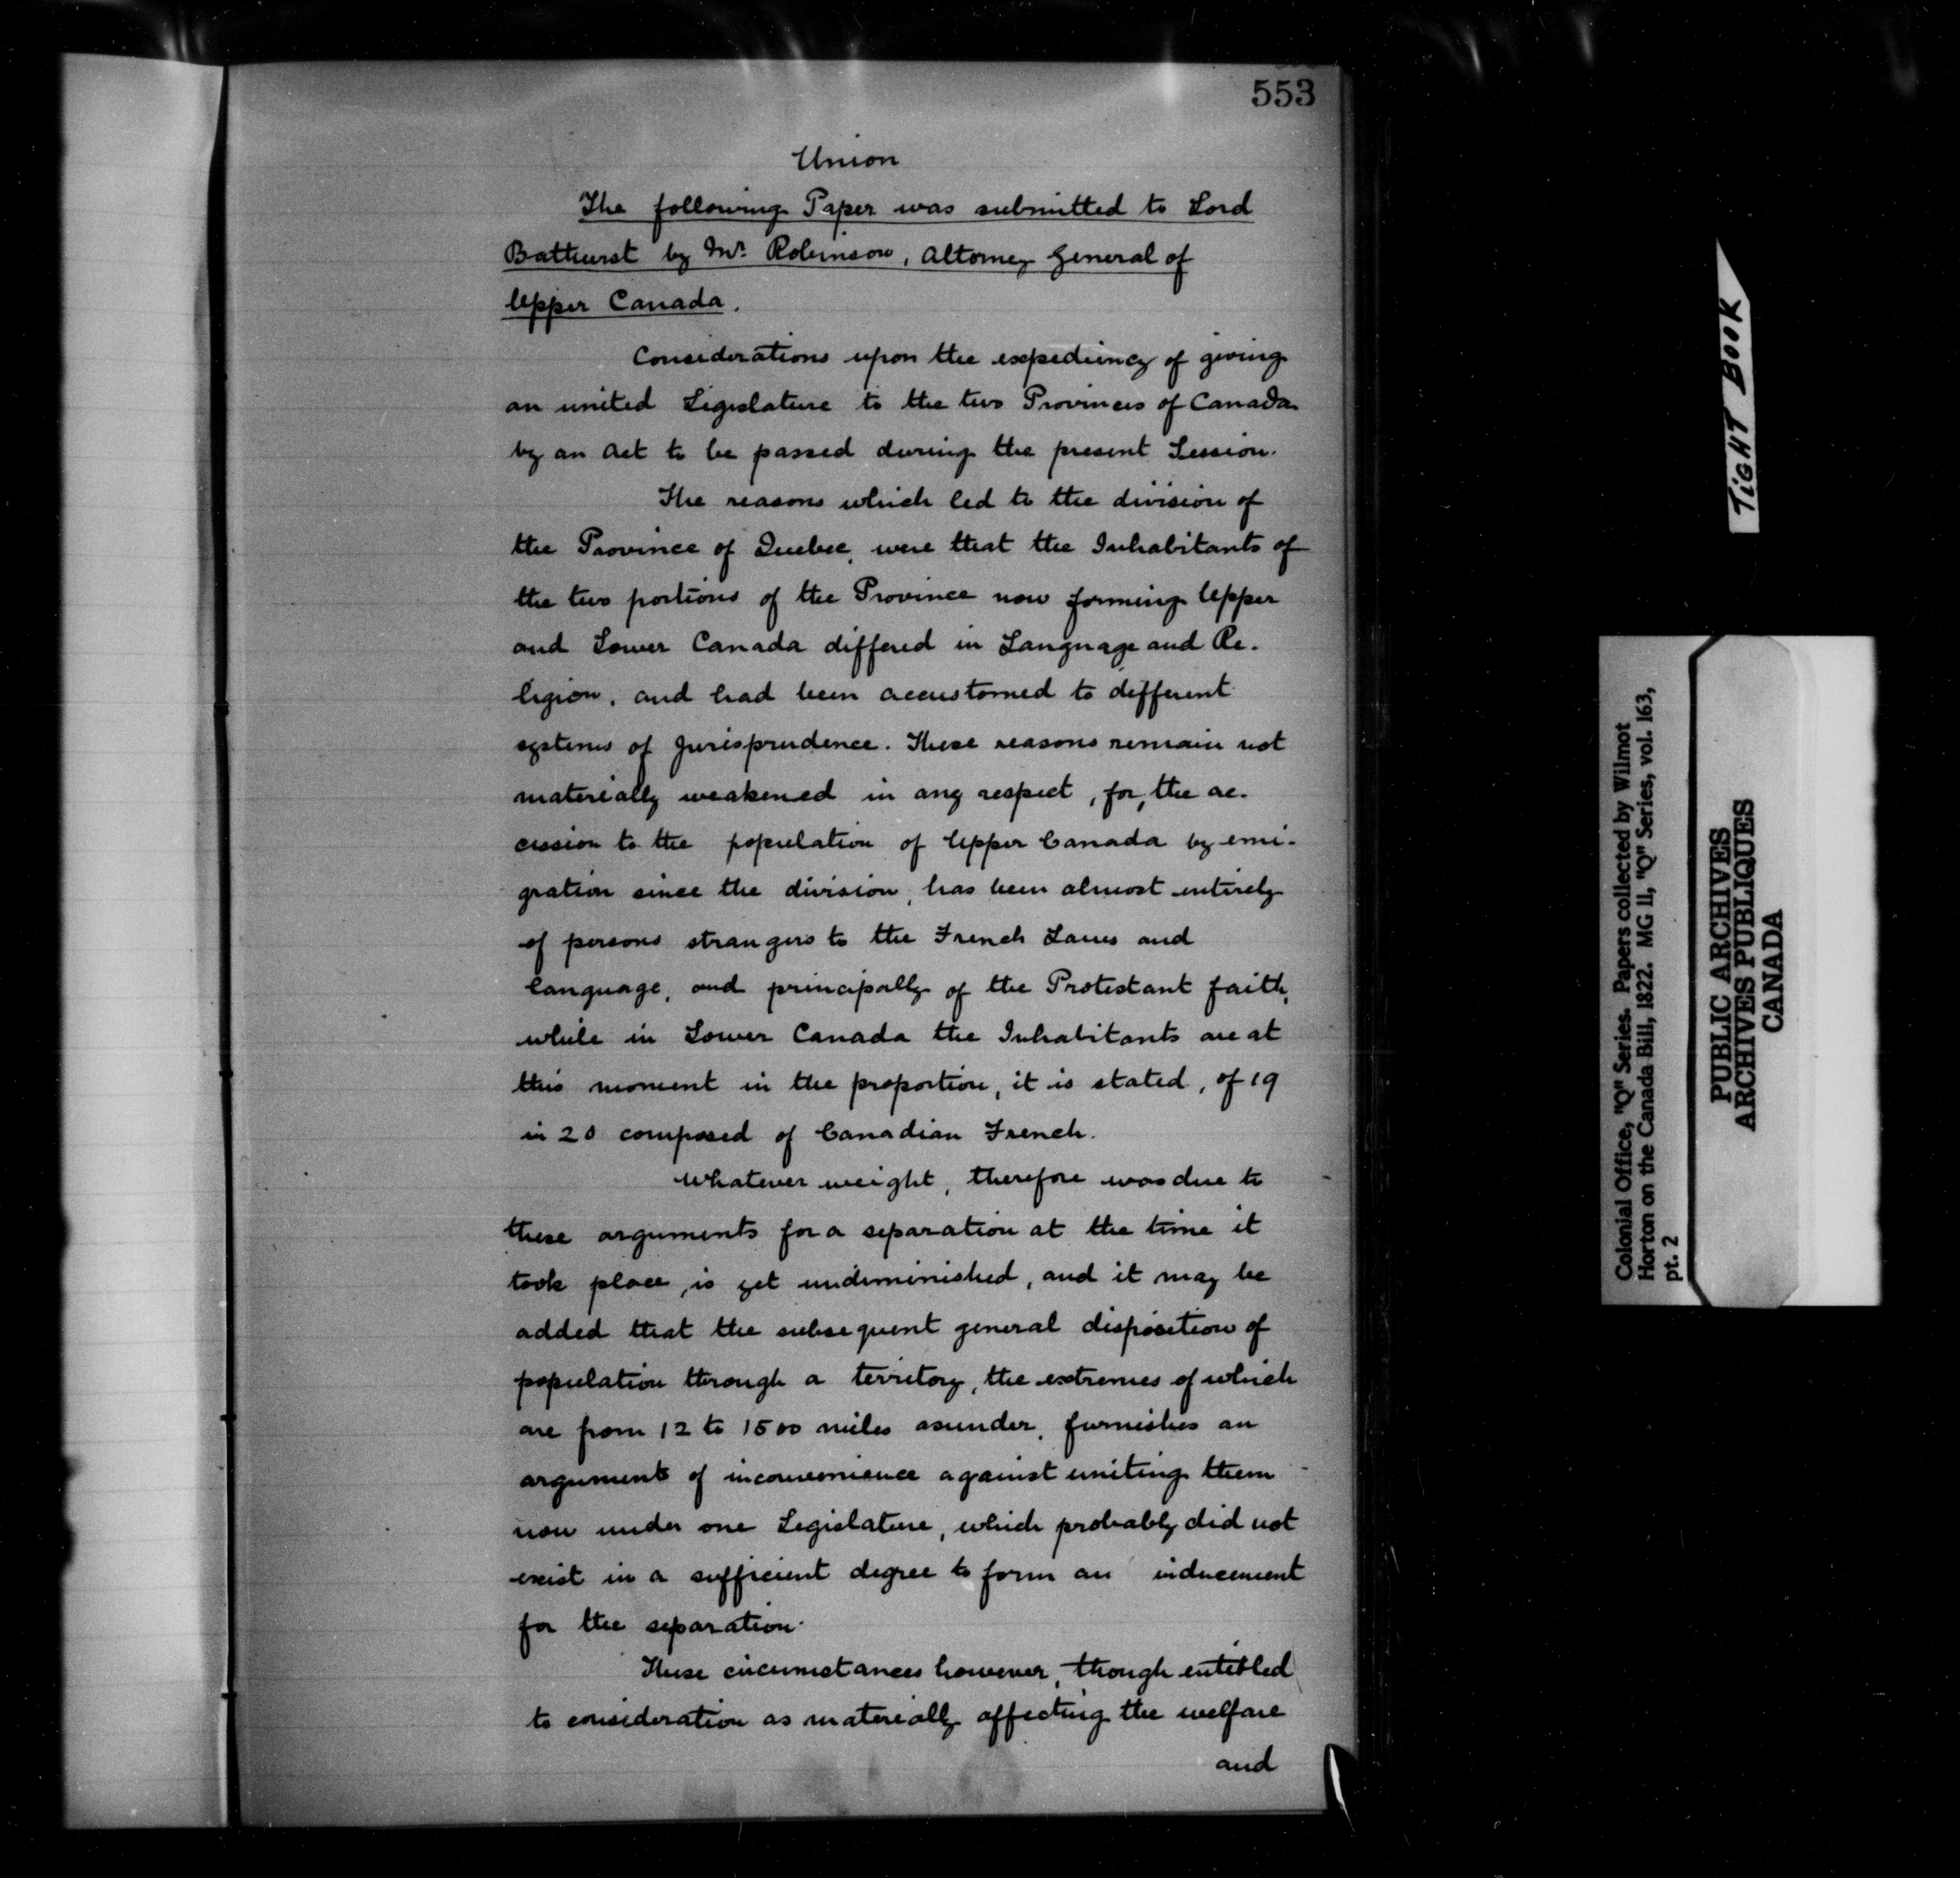 553
Union
The following Paper was submitted to Lord
Bathurst by Mr. Robinson, Attorney General of
Upper Canada.
Considerations upon the expediency of giving
an united Legislature to the two Provinces of Canada
by an Act to be passed during the present Session.
The reasons which led to the division of
the Province of Quebec, were that the Inhabitants of
the two portions of the Province now forming Upper
and Lower Canada differed in Language and Re-
ligion, and had been accustomed to different
systems of Jurisprudence. These reasons remain not
materially weakened in any respect, for, the ac-
cession to the population of Upper Canada by emi-
gration since the division, has been almost entirely
of persons strangers to the French Laws and
language, and principally of the Protestant faith,
while in Lower Canada the Inhabitants are at
this moment in the proportion, it is stated, of 19
in 20 composed of Canadian French.
Whatever weight, therefore was due to
these arguments for a separation at the time it
took place, is yet undiminished, and it may be
added that the subsequent general disposition of
population through a territory, the extremes of which
are from 12 to 1500 miles asunder, furnishes an
argument of inconvenience against uniting them
now under one Legislature, which probably did not
exist in a sufficient degree to form an inducement
for the separation.
These circumstances however, though entitled
to consideration as materially affecting the welfare
and
TIGHT BOOK
Colonial Office, "Q" Series. Papers collected by Wilmot
Horton on the Canada Bill, 1822. MG 11, "Q" Series, vol. 163,
pt. 2
PUBLIC ARCHIVES
ARCHIVES PUBLIQUES
CANADA